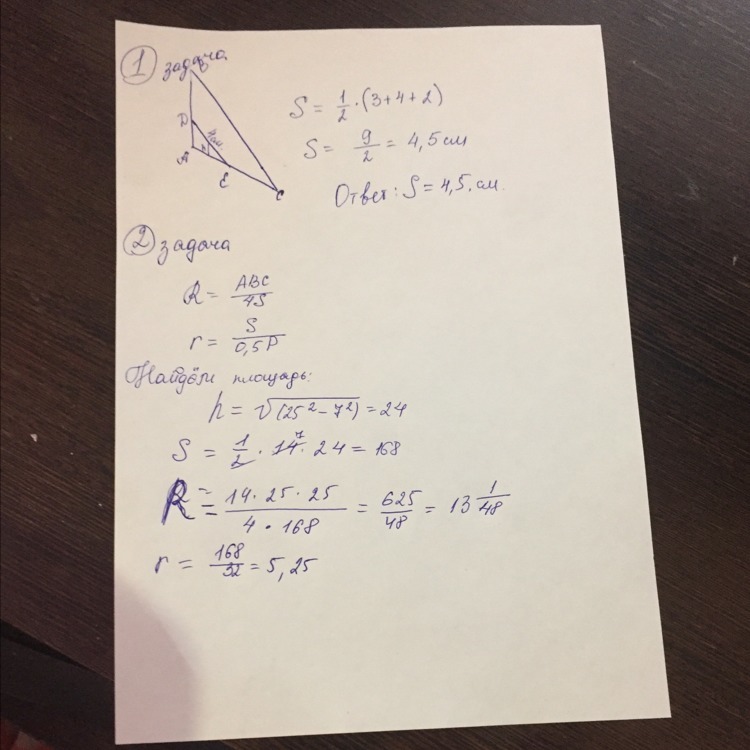 1 задача
D
A
E
C
S = 1/2 · (3+4+2)
S = 9/2 = 4,5 см
Ответ: S = 4,5 см.
2 задача
R = ABC/4S
r = S/0,5P
Найдём площадь:
h = √(25² - 7²) = 24
S = 1/2 · 14 7 · 24 = 168
R = 14 · 25 · 25 / 4 · 168 = 625/48 = 13 1/48
r = 168/32 = 5,25